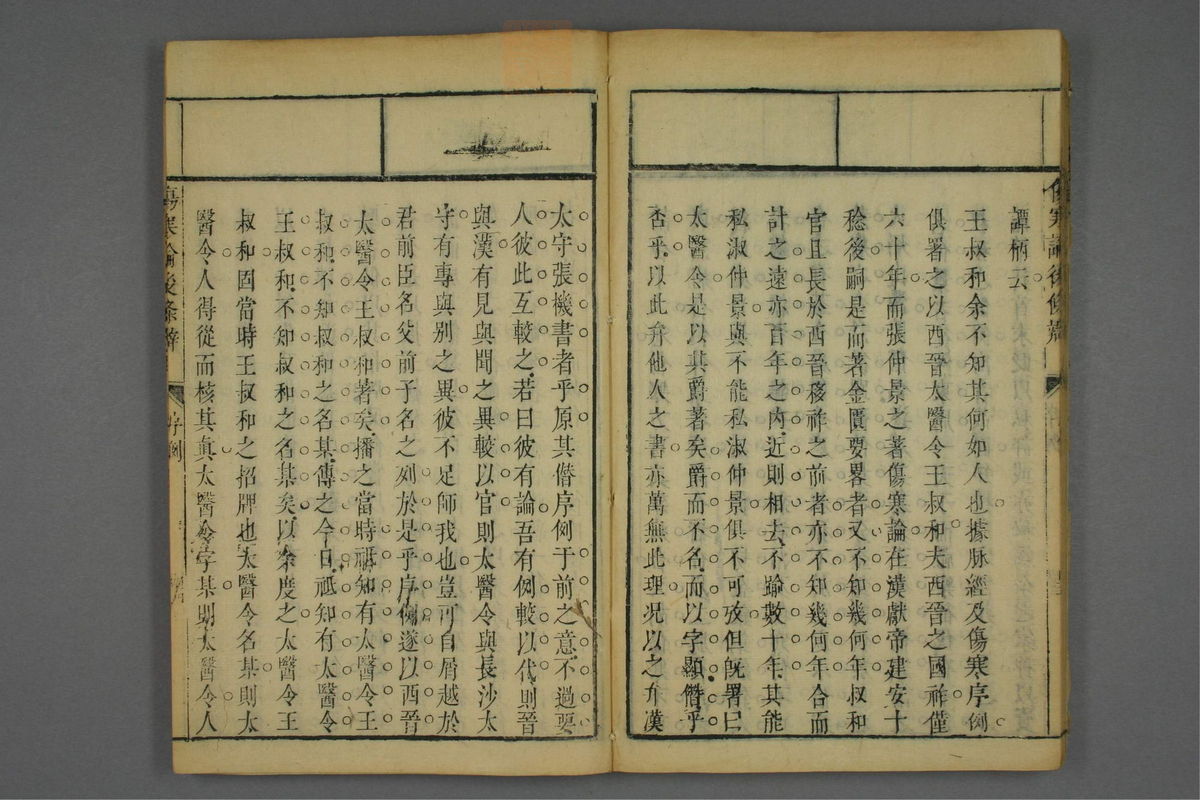 傷寒論後條辨
譚柄云
王叔和余不知其何如人也據脉經及傷寒序例
俱署之以西晉太醫令王叔和夫西晉之國祚僅
六十年而張仲景之著傷寒論在漢獻帝建安十
稔後嗣是而著金匱要畧者又不知幾何年叔和
官且長於西晉移祚之前者亦不知幾何年合而
計之遠亦百年之內近則相去不踰數十年其能
私淑仲景與不能私淑仲景俱不可攷但旣署曰
太醫令是以其爵著矣爵而不名而以字顯僭乎
否乎以此弁他人之書亦萬無此理況以之弁漢
太守張機書者乎原其僭序例于前之意不過要
人彼此互較之若曰彼有論吾有例較以代則晉
與漢有見與聞之異較以官則太醫令與長沙太
守有專與别之異彼不足師我也豈可自屑越於
君前臣名父前子名之列於是乎序例遂以西晉
太醫令王叔和著矣播之當時祗知有太醫令王
叔和不知叔和之名某傳之今日祗知有太醫令
王叔和不知叔和之名某矣以余度之太醫令王
叔和固當時王叔和之招牌也太醫令名某則太
醫令人得從而核其眞太醫令字某則太醫令人
傷寒論後條辨
序例